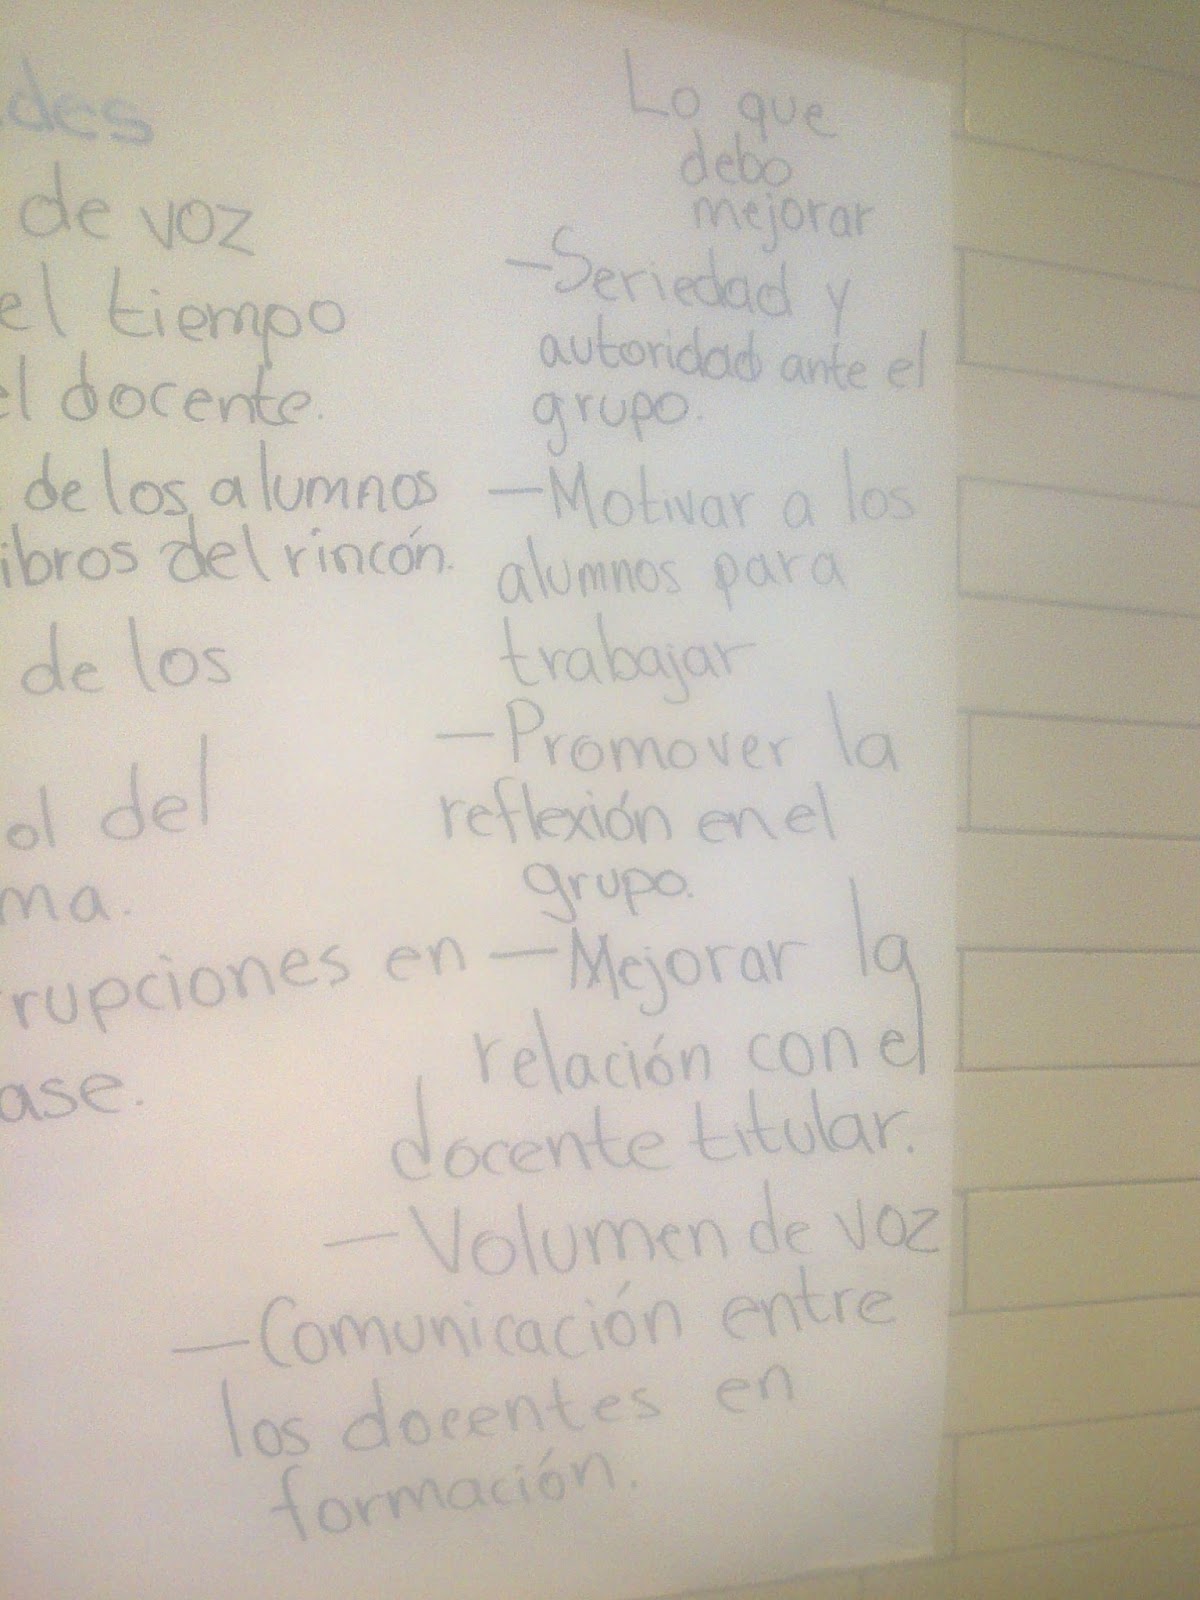 des
de voz
el tiempo
el docente.
de los alumnos
ibros del rincón.
de los
ol del
ma.
rupciones en
ase.
Lo que
debo
mejorar
—Seriedad y
autoridad ante el
grupo.
—Motivar a los
alumnos para
trabajar
—Promover la
reflexión en el
grupo.
—Mejorar la
relación con el
docente titular.
—Volumen de voz
—Comunicación entre
los docentes en
formación.